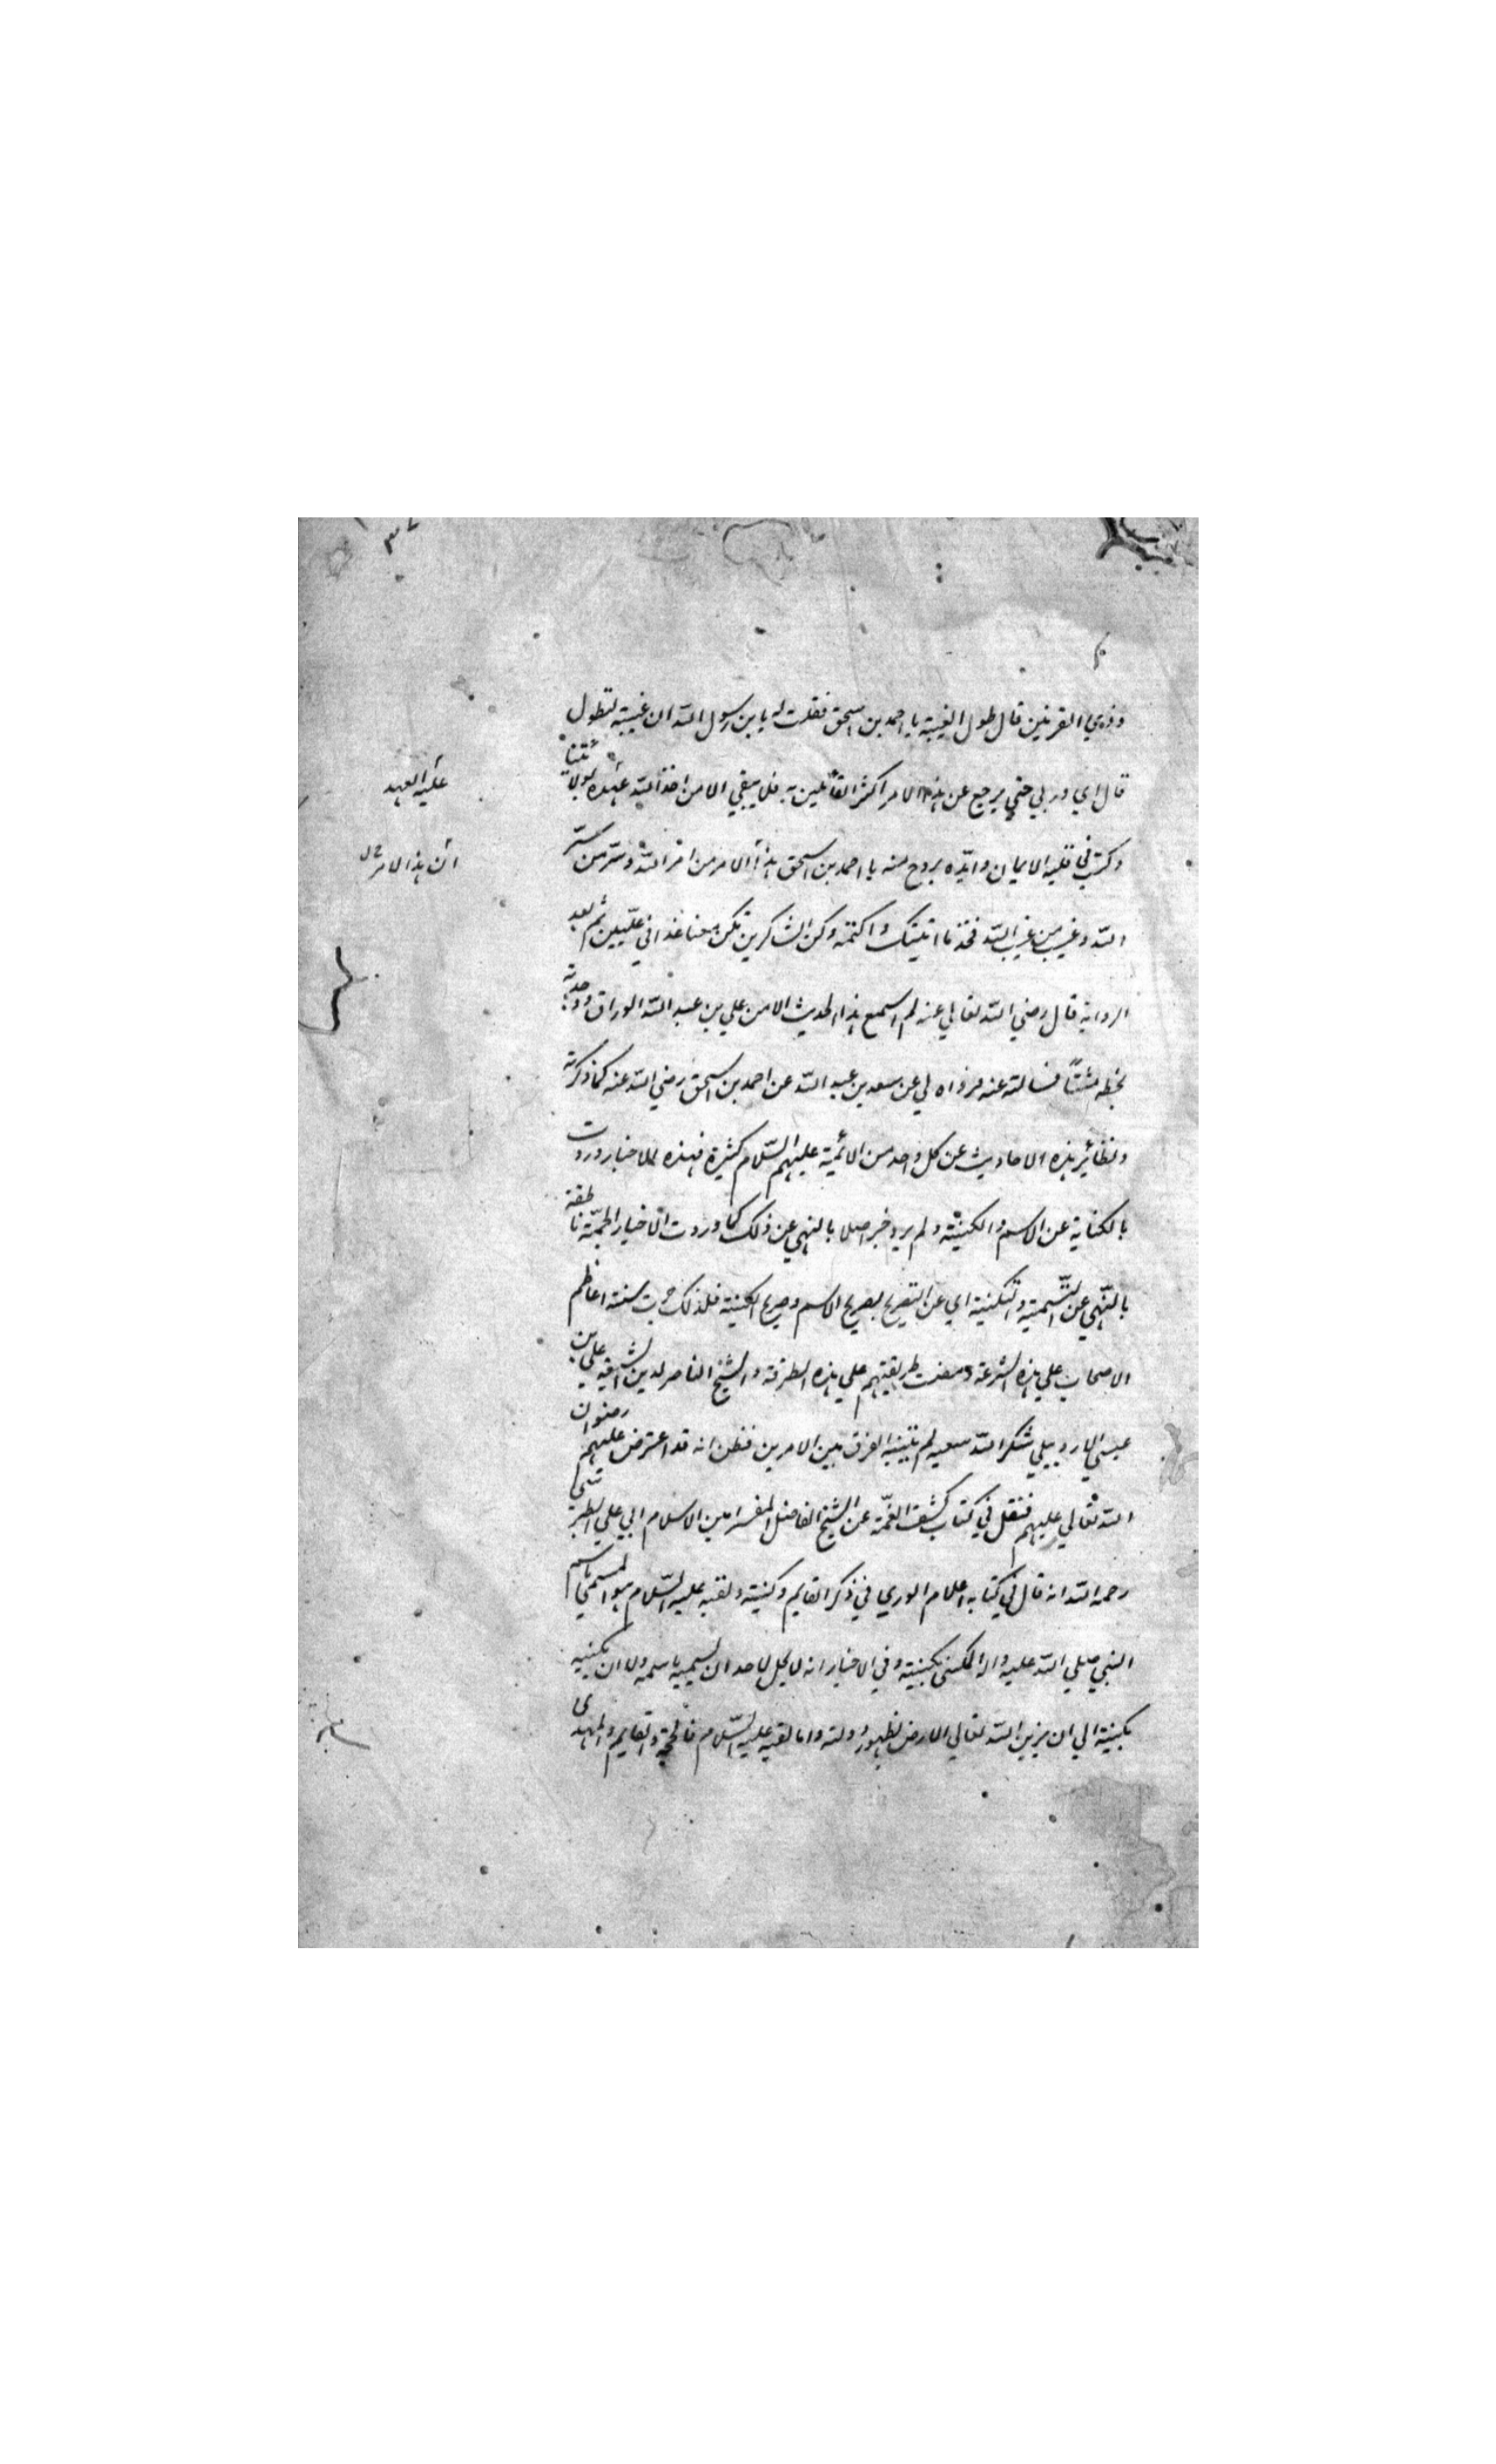 وذي القرنين قال طول الغيبة يا احمد بن اسحق فقلت له يا بن رسول الله ان غيبته لتطول
قال اي وربي حتي يرجع عن هذا الامر اكثر القائلين به فلا يبقي الا من اخذ الله عهده بولايتنا
عليه العهد
وكتب في قلبه الايمان وايّده بروح منه يا احمد بن اسحق هذا الامر من امر الله وسرّ من سرّ
ان هذا الامر
الله وغيب من غيب الله فخذ ما اتيتك واكتمه وكن الشاكرين تكن معنا غدا في علّيين ثم بعد
الرواية قال رضي الله تعالي عنه لم اسمع هذا الحديث الا من علي بن عبد الله الوراق ووجدته
بخطه مثبتًا فسالته عنه فرواه لي عن سعد بن عبد الله عن احمد بن اسحق رضي الله عنه كما ذكرته
ونظائر هذه الاحاديث عن كل واحد من الائمية عليهم السّلام كثيرة فهذه الاخبار وردت
بالكناية عن الاسم والكنية ولم يرد خبر اصلا بالنهي عن ذلك كما وردت الاخبار الجمّة ناطقة
بالنّهي عن التّسمية والتّكنية اي عن التصريح بصريح الاسم وصريح الكنية فلذلك جرت سنة اعاظم
الاصحاب علي هذه الشرعة ومضت طريقتهم علي هذه الطرقة والشيخ الناصر لدين الشيعة علي بن
عيسي الاردبيلي شكر الله سعيه لم يتنبه الفرق بين الامرين فظن انه قد اعترض عليهم رضوان
الله تعالي عليهم فنقل في كتاب كشف الغمّة عن الشيخ الفاضل المفسر امين الاسلام ابي علي الطبرسي
رحمه الله انه قال في كتابه اعلام الوري في ذكر القايم وكنيته ولقبه عليه السّلام هو المسمي باسم
النبي صلي الله عليه واله المكنى بكنيته وفي الاخبار انه لا يحل لاحد ان يسميه باسمه ولا ان يكنيه
بكنيته الي ان يزين الله تعالي الارض بظهور دولته واما لقبه عليه السّلام فالحجة والقايم والمهدى